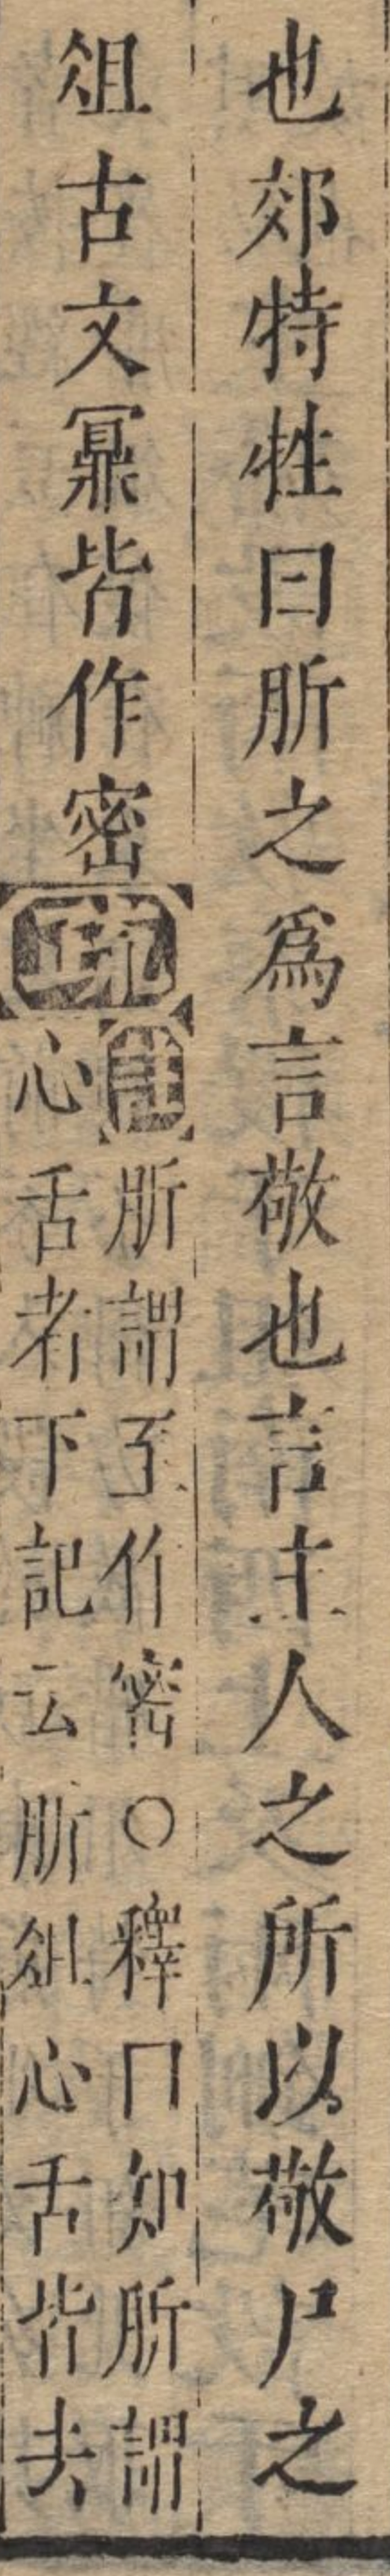 也郊特牲曰肵之爲言敬也言主人之所以敬尸之
俎古文鼏皆作密
疏
注肵謂至作密○釋曰知肵謂
心舌者下記云肵俎心舌皆去